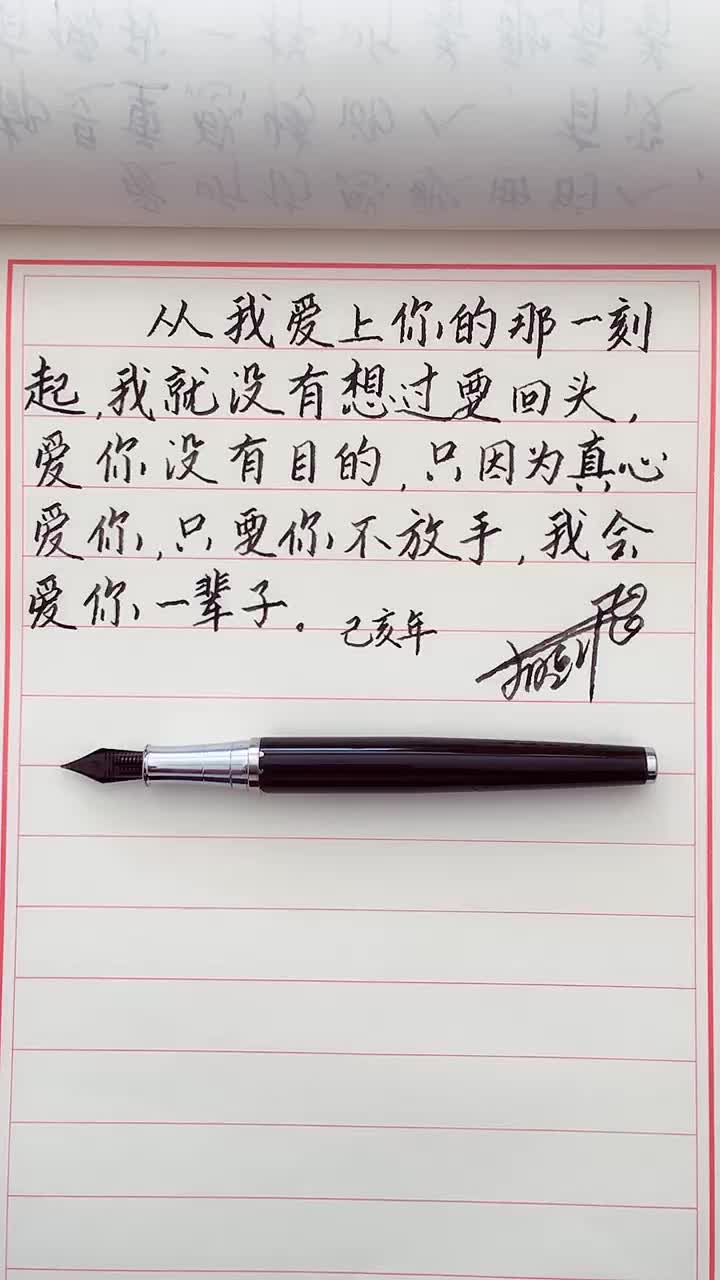 从我爱上你的那一刻
起,我就没有想过要回头,
爱你没有目的,只因为真心
爱你,只要你不放手,我会
爱你一辈子。己亥年